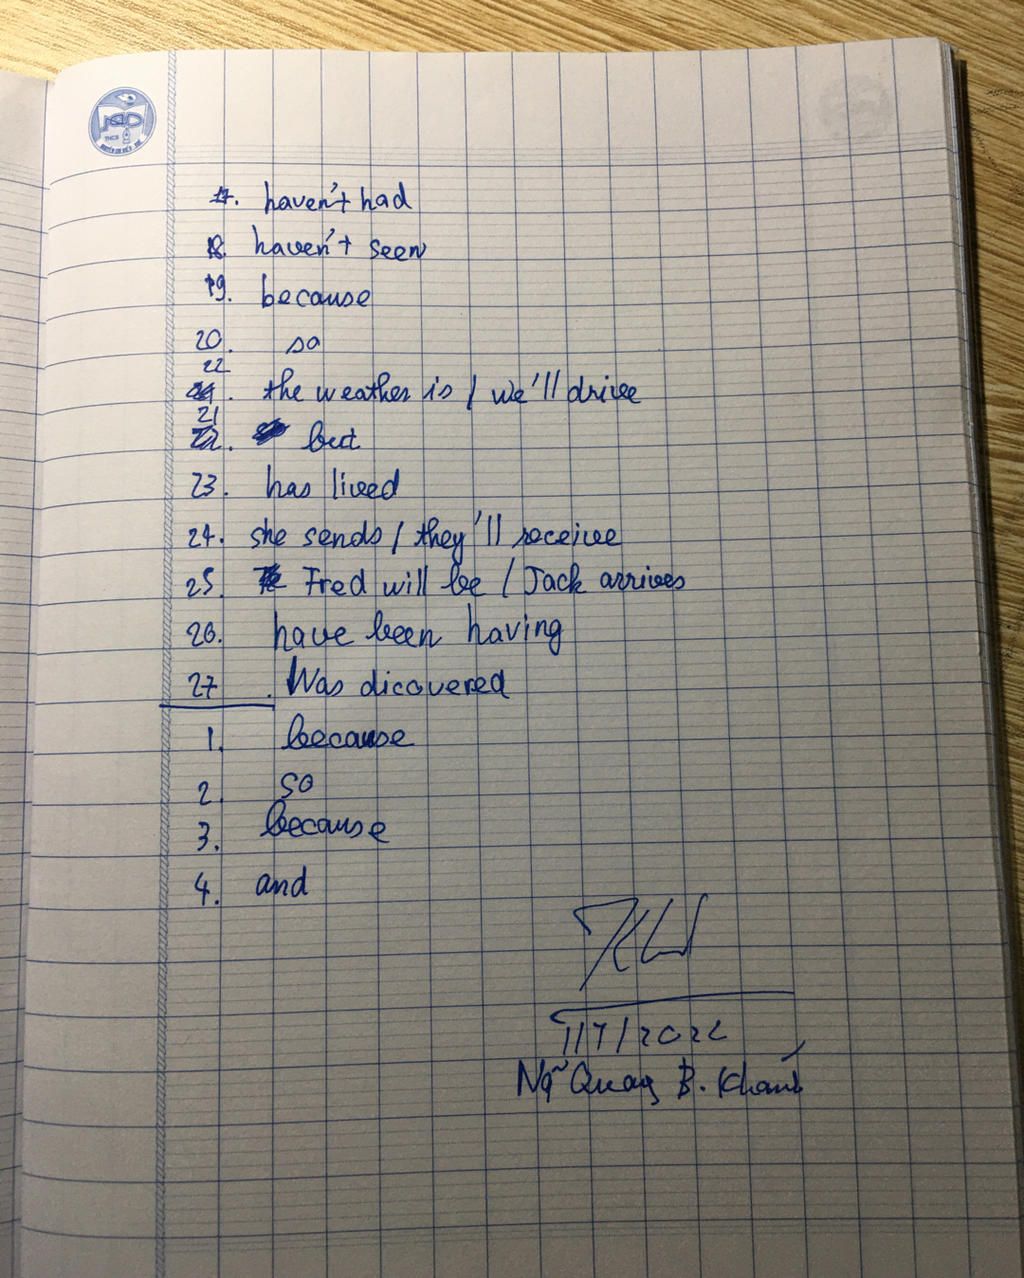 17. haven't had
18. haven't seen
19. because
20. so
22. the weather is / we'll drive
21. but
23. has lived
24. she sends / they'll receive
25. Fred will be / Jack arrives
26. have been having
27. Was dicovered
1. because
2. so
3. because
4. and
/7/2022
Quang B. Khánh